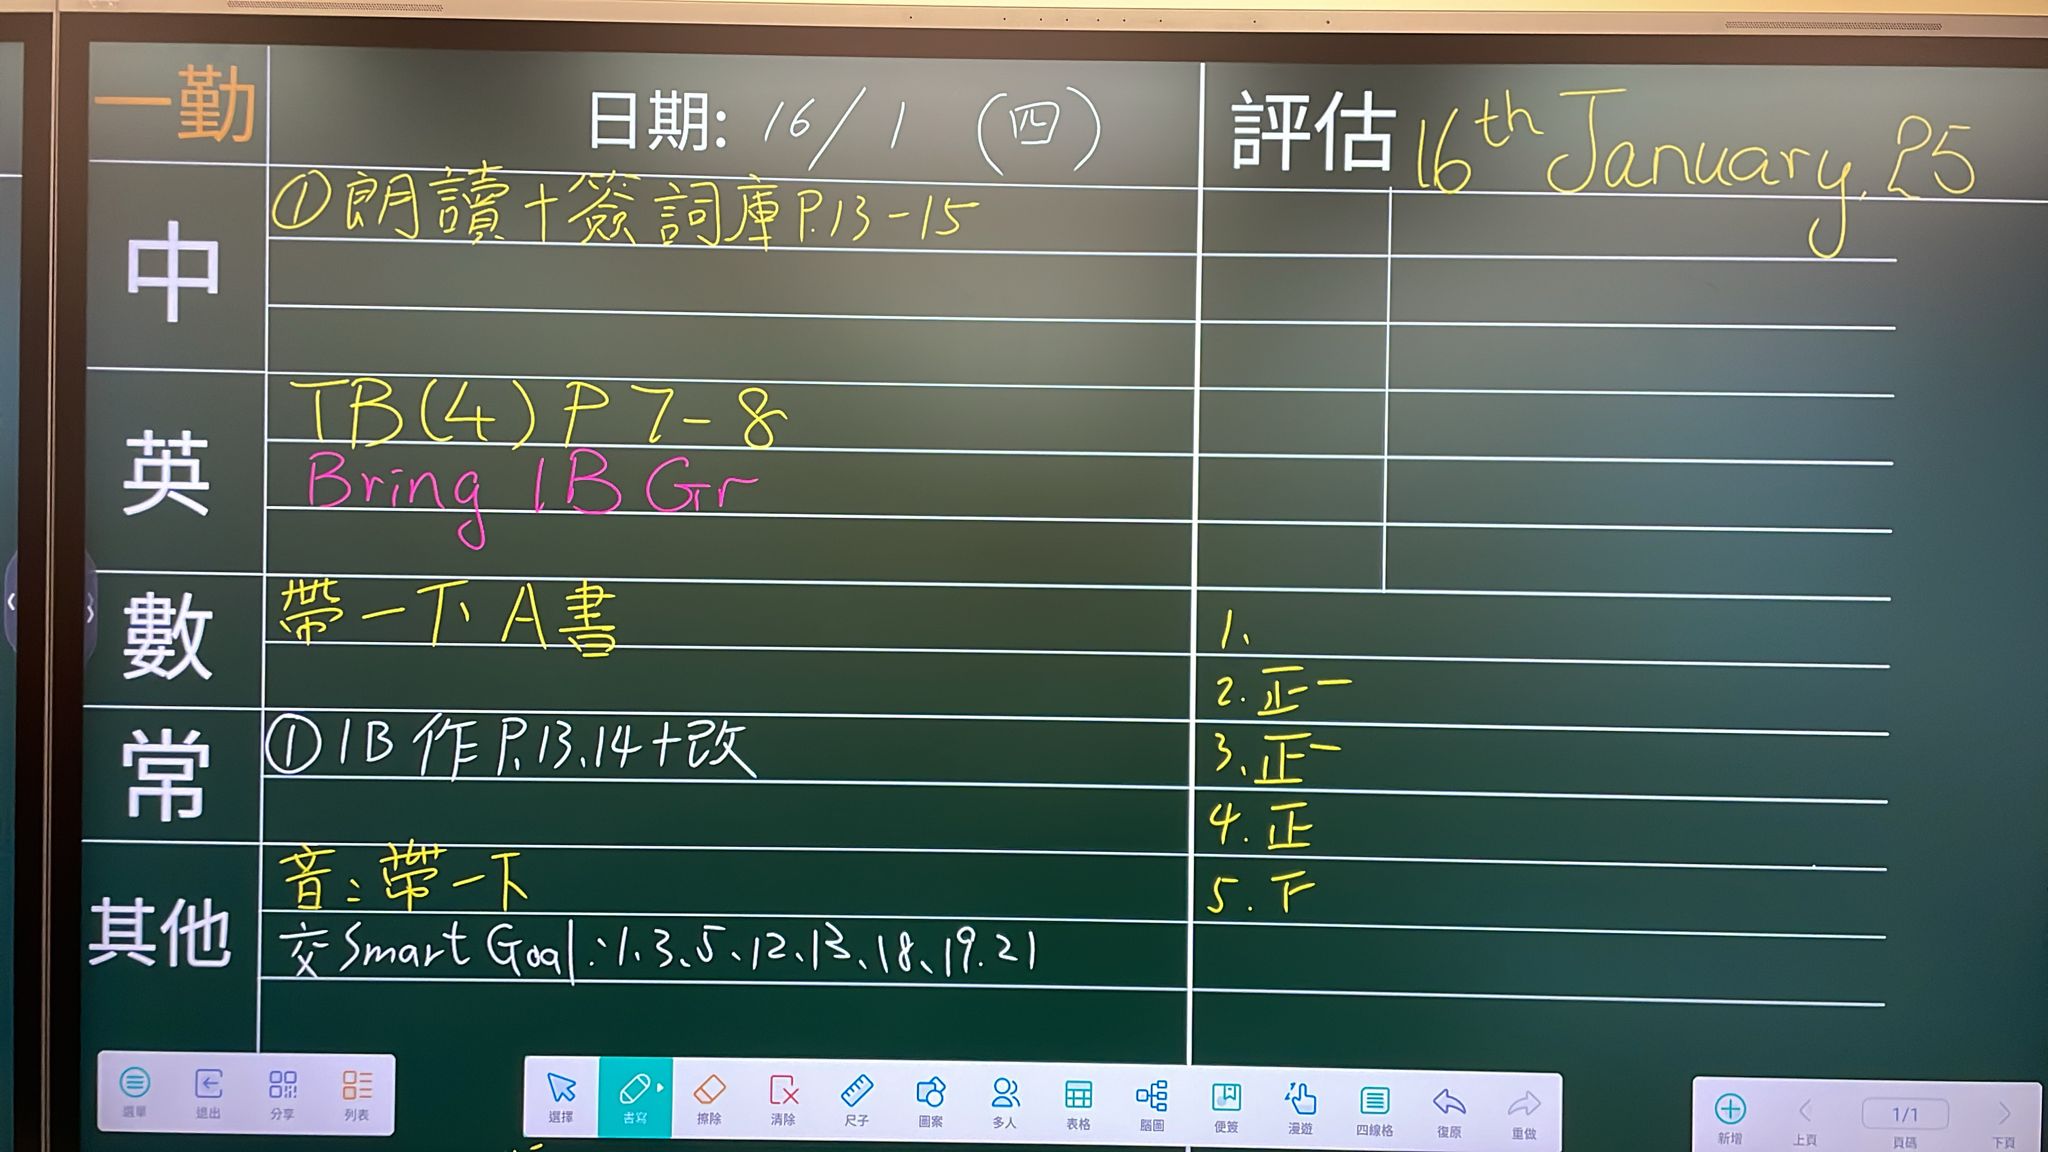 一勤
日期: 16/1 (四)
評估 16th January, 25
中
① 朗讀+簽詞庫 P.13-15
英
TB(4) P 7-8
Bring 1B Gr
數
帶一下A書
常
① 1B 作 P.13、14+改
其他
音:帶一下
交 Smart Goal:1、3、5、12、13、18、19.21
1、
2. 正一
3、正一
4. 正
5. 下
選單 退出 分享 列表
選擇 書寫 擦除 清除 尺子 圖案 多人 表格 腦圖 便簽 漫遊 四線格 復原 重做
新增 上頁 1/1 頁碼 下頁